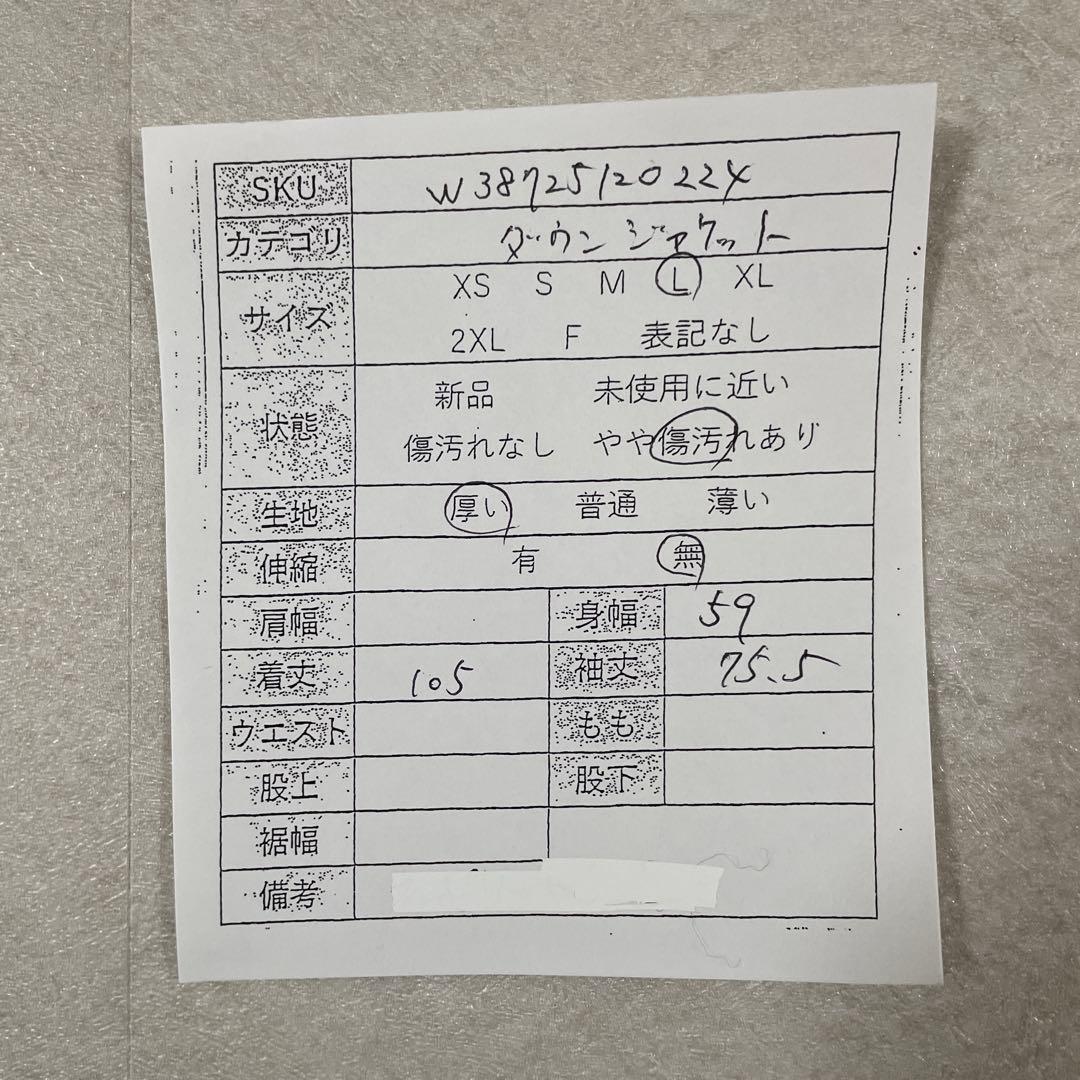 SKU W38725120224
カテゴリ ダウンジャケット
サイズ XS S M L XL
2XL F 表記なし
状態 新品 未使用に近い
傷汚れなし やや傷汚れあり
生地 厚い 普通 薄い
伸縮 有 無
肩幅 身幅 59
着丈 105 袖丈 75.5
ウエスト もも
股上 股下
裾幅
備考